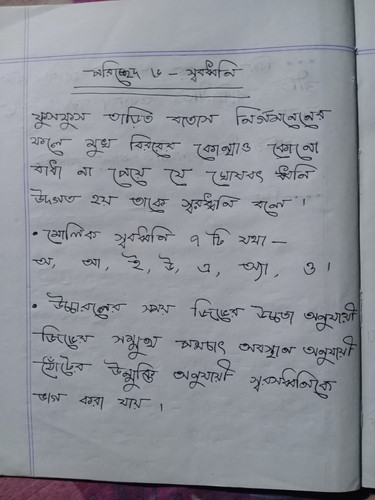 পরিচ্ছেদ ৬ - স্বরধ্বনি
ফুসফুস তাড়িত বাতাস নির্গমনেনের
ফলে মুখ বিবরের কোথাও কোনো
বাধা না পেয়ে যে ঘোষবৎ ধ্বনি
উদগত হয় তাকে স্বরধ্বনি বলে ।
• মৌলিক স্বরধ্বনি ৭ টি যথা -
অ, আ, ই, উ, এ, অ্যা, ও ।
• উচ্চারনের সময় জিভের উচ্চতা অনুযায়ী
জিভের সম্মুখ পশ্চাৎ অবস্থান অনুযায়ী
ঠোঁটের উন্মুক্তি অনুযায়ী স্বরধ্বনিকে
ভাগ করা যায় ।